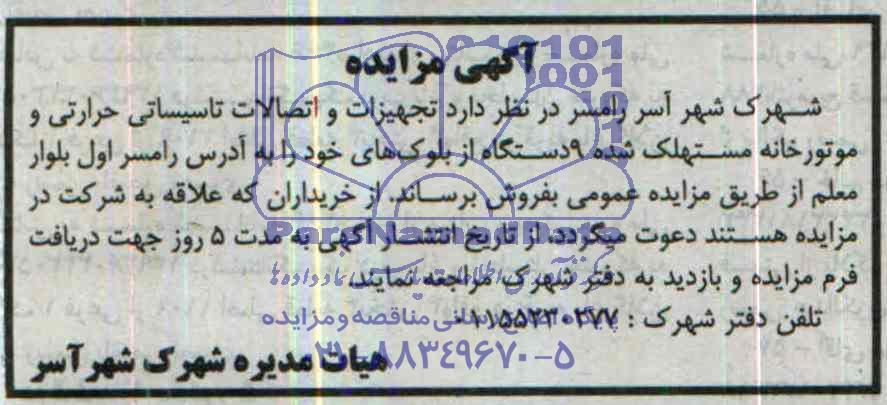 آگهی مزایده
شهرک شهر آسر رامسر در نظر دارد تجهیزات و اتصالات تاسیساتی حرارتی و
موتورخانه مستهلک شده ۹دستگاه از بلوک‌های خود را به آدرس رامسر اول بلوار
معلم از طریق مزایده عمومی بفروش برساند. از خریداران که علاقه به شرکت در
مزایده هستند دعوت میگردد. از تاریخ انتشار آگهی به مدت ۵ روز جهت دریافت
فرم مزایده و بازدید به دفتر شهرک مراجعه نمایند.
تلفن دفتر شهرک : ۰۱۱۵۵۲۳۰۲۷۷
هیات مدیره شهرک شهر آسر
ParsNamadData
پایگاه اطلاع رسانی مناقصه و مزایده
۰۲۱-۸۸۳۴۹۶۷۰-۵